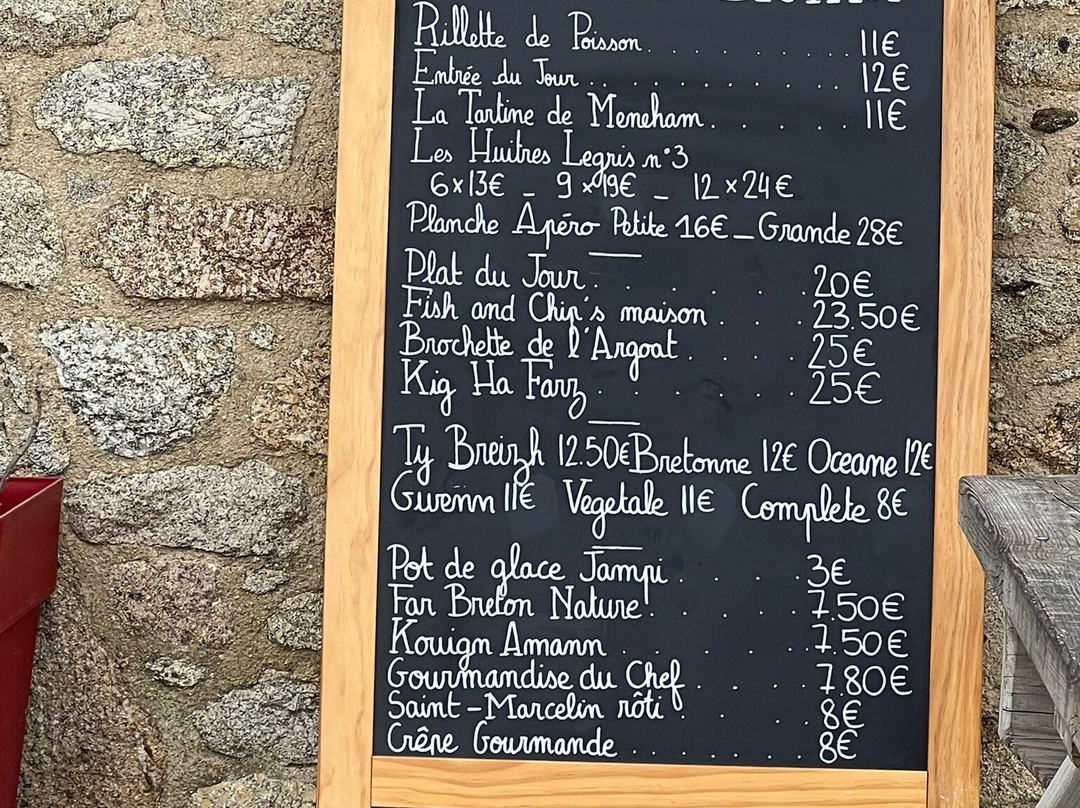 Rillette de Poisson. . . . . . . . . . 11€
Entrée du Jour . . . . . . . . . . 12€
La Tartine de Meneham . . . . . . 11€
Les Huitres Legris n°3
6x13€ _ 9x19€ _ 12x24€
Planche Apéro Petite 16€ _ Grande 28€
Plat du Jour . . . . . . 20€
Fish and Chip's maison . . . . 23.50€
Brochette de l'Argoat . . . . 25€
Kig Ha Farz . . . . . . 25€
Ty Breizh 12.50€ Bretonne 12€ Oceane 12€
Gwenn 11€ Vegetale 11€ Complete 8€
Pot de glace Jampi . . . . 3€
Far Breton Nature . . . . . 7.50€
Kouign Amann . . . . . . 7.50€
Gourmandise du Chef . . . . 7.80€
Saint-Marcelin rôti . . . . . 8€
Crêpe Gourmande . . . . . . 8€